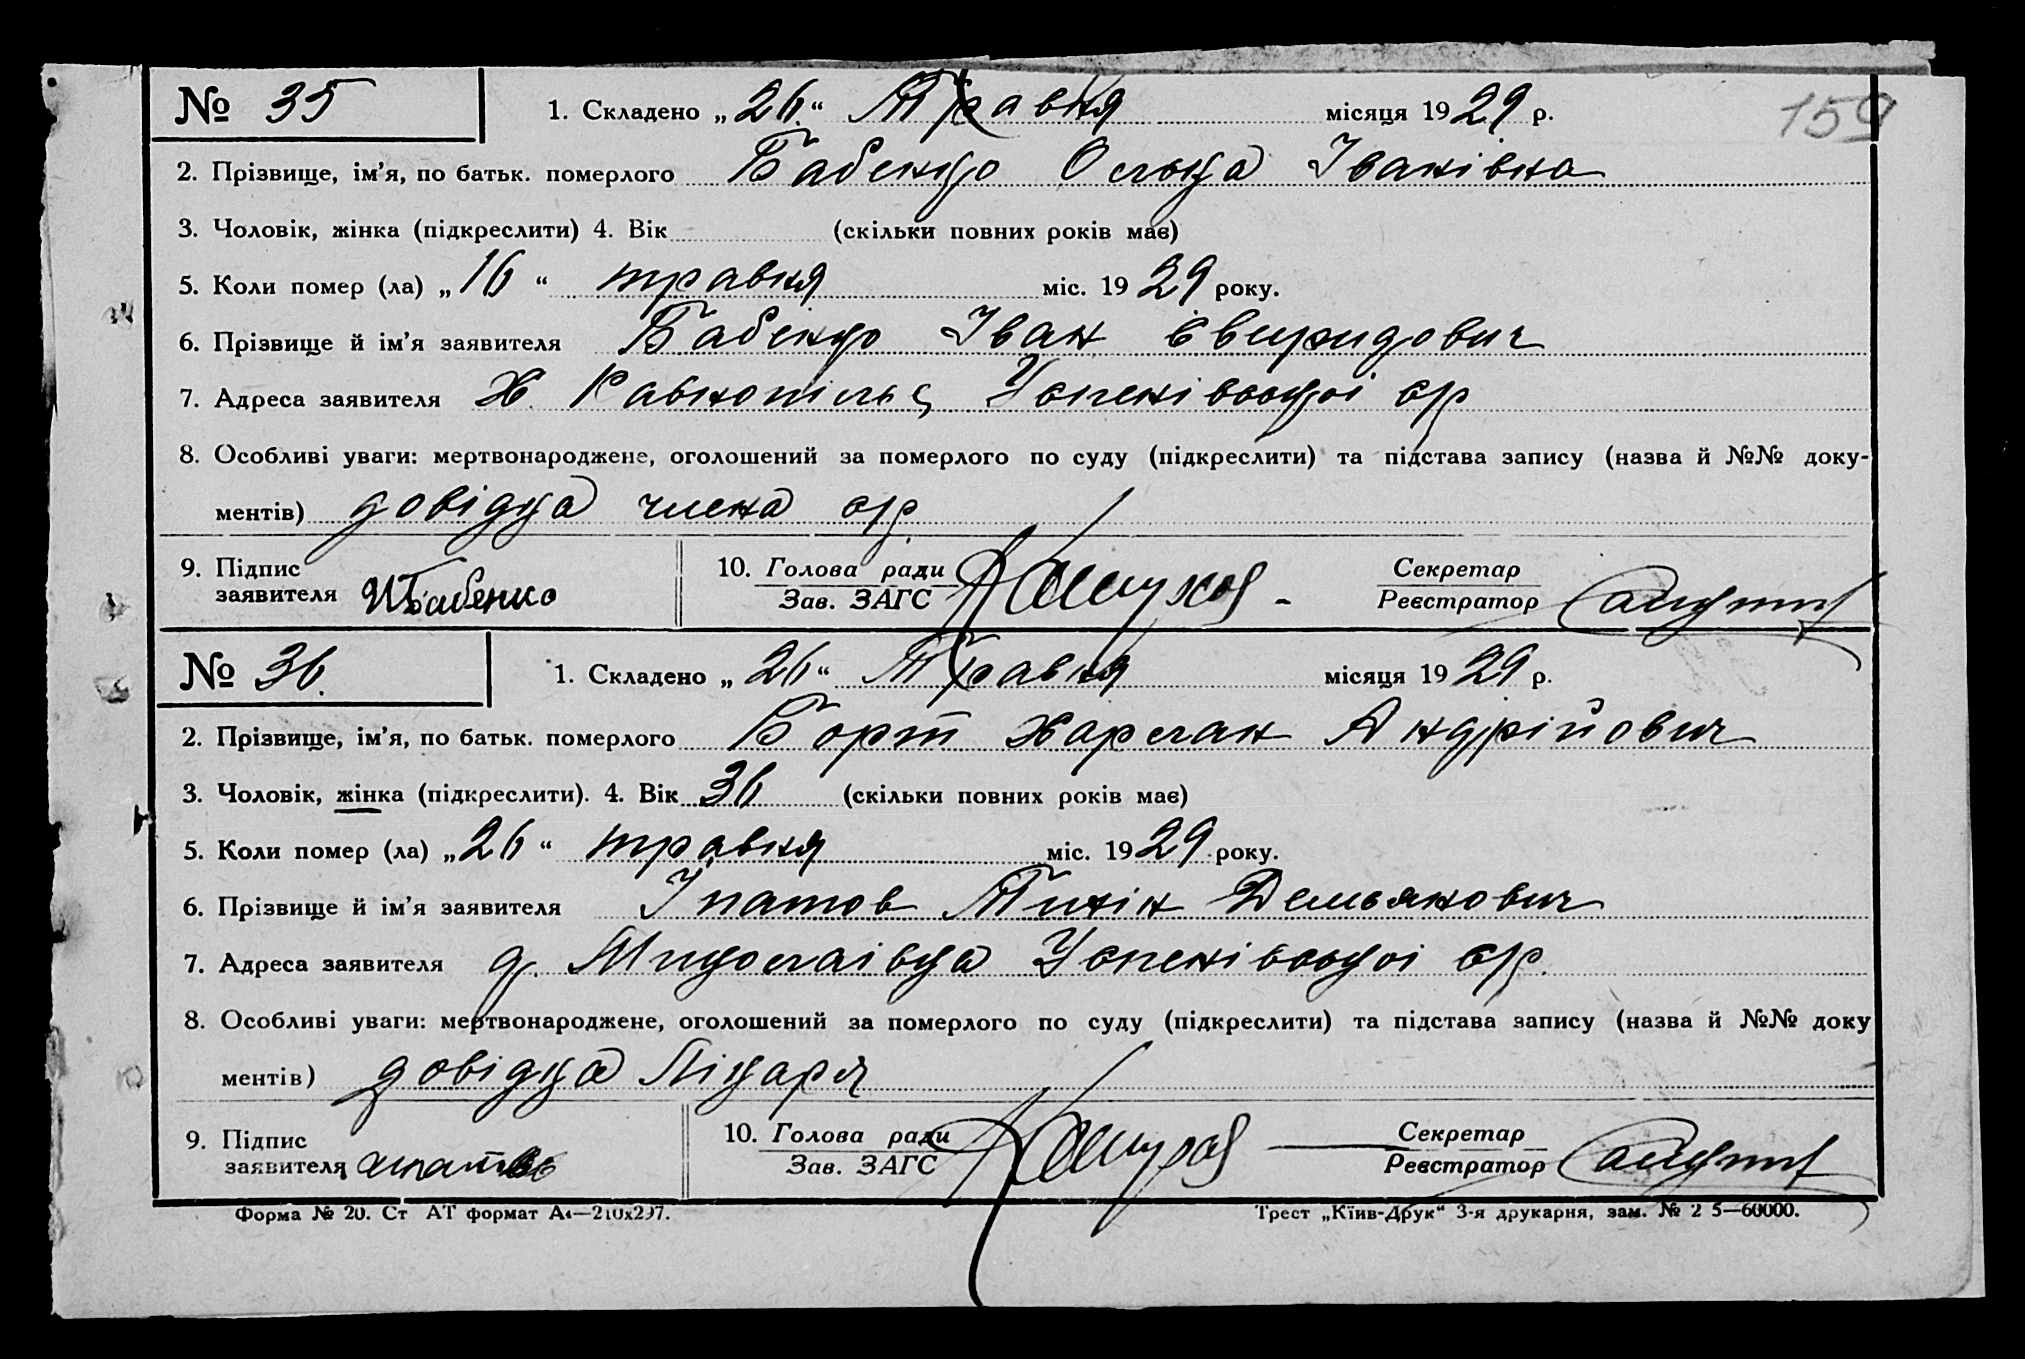 № 35 1. Складено „26“ Травня місяця 1929 р. 159
2. Прізвище, ім'я, по батьк. померлого Бабенко Ольга Іванівна
3. Чоловік, жінка (підкреслити) 4. Вік (скільки повних років має)
5. Коли помер (ла) „16“ травня міс. 1929 року.
6. Прізвище й ім'я заявителя Бабенко Іван Євиридович
7. Адреса заявителя Х. Равнопіль Успенівської с/р
8. Особливі уваги: мертвонароджене, оголошений за померлого по суду (підкреслити) та підстава запису (назва й №№ доку-
ментів) довідка члена с/р
9. Підпис 10. Голова ради Секретар
заявителя И Бабенко Зав. ЗАГС Реєстратор
№ 36. 1. Складено „26“ Травня місяця 1929 р.
2. Прізвище, ім'я, по батьк. померлого Борт Харлан Андрійович
3. Чоловік, жінка (підкреслити). 4. Вік 36 (скільки повних років має)
5. Коли помер (ла) „26“ травня міс. 1929 року.
6. Прізвище й ім'я заявителя Іпатов Демьянович
7. Адреса заявителя д. Миколаівка Успенівської с/р.
8. Особливі уваги: мертвонароджене, оголошений за померлого по суду (підкреслити) та підстава запису (назва й №№ доку
ментів) довідка Лікаря
9. Підпис 10. Голова ради Секретар
заявителя Зав. ЗАГС Реєстратор
Форма № 20. Ст АТ формат А4—210х297. Трест „Київ-Друк“ 3-я друкарня, зам. № 2 5—60000.